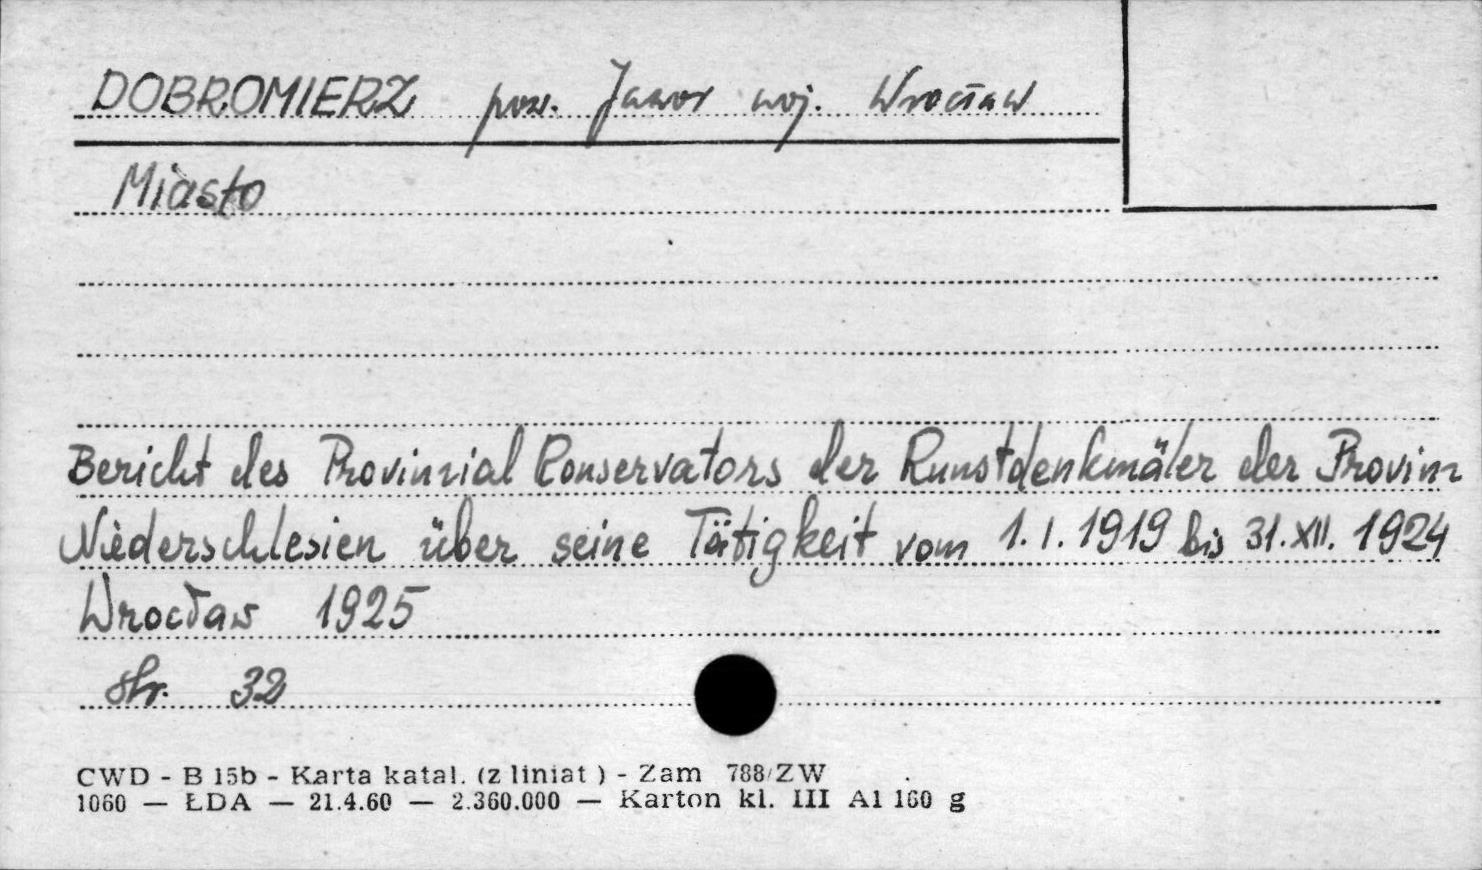 DOBROMIERZ pow. Jawor woj. Wrocław
Miasto
Bericht des Provinzial Conservators der Kunstdenkmäler der Provinz
Niederschlesien über seine Tätigkeit vom 1.I.1919 bis 31.XII.1924
Wrocław 1925
str. 32
CWD - B 15b - Karta katal. (z liniat ) - Zam 788/ZW
1060 — ŁDA — 21.4.60 — 2.360.000 — Karton kl. III A1 160 g